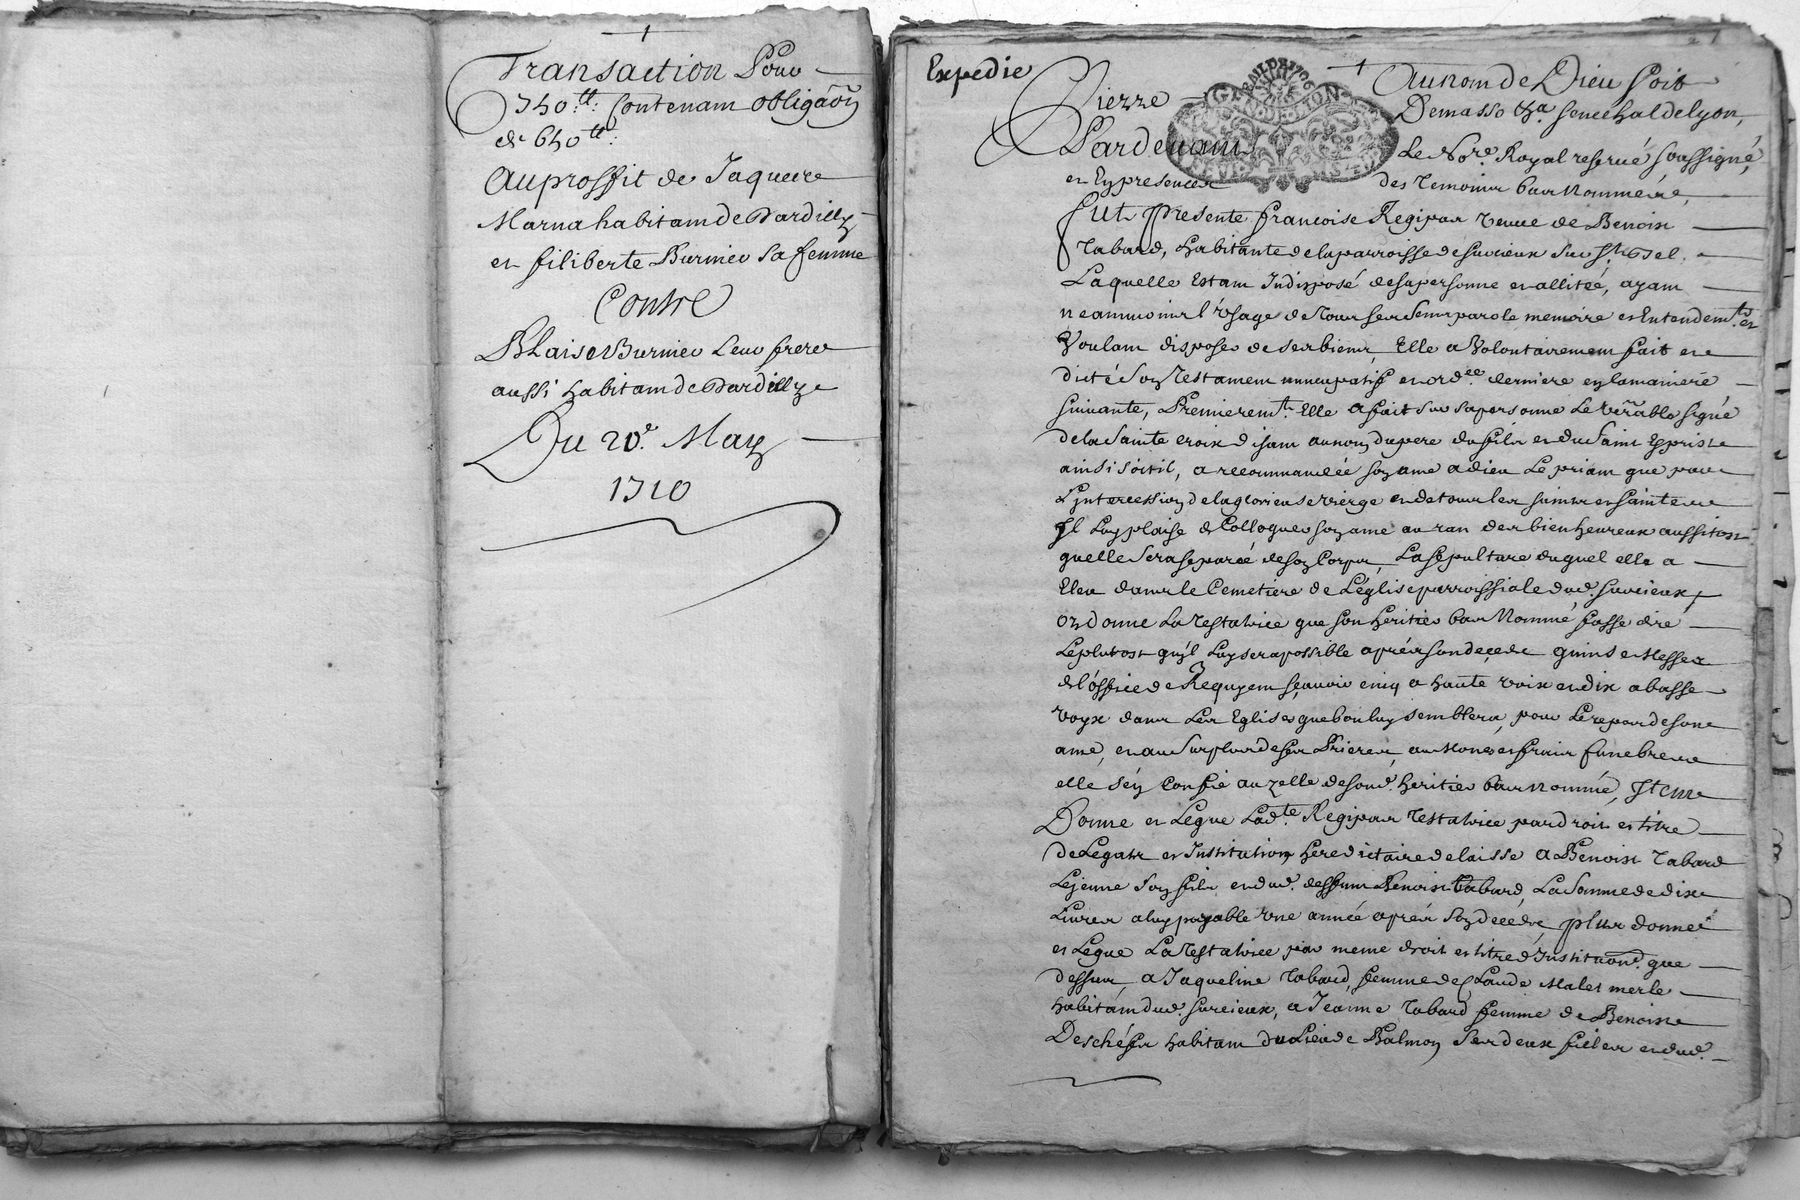 Transaction Pour
340.tt: Contenam obligãoñ
de 640tt:
Au proffit de Jaqueire
Marna habitam de Dardilly
et filiberte Burnier Sa femme
Contre
Blaise Burnier Leur frere
aussi habitam de Dardilly
Du 20.e May
1710
Expedie
Au nom de Dieu soit
Pierre Demasso senechal de lyon,
Pardevam Le Nore. Royal reservé soussigné,
et En presence des Temoins bas Nommés,
fut presente francoise Regipas veuve de Benoist
Tabard, habitante de la parroisse de Surcieux
Laquelle Estam Indisposé de sa personne et allitée, ayam
neammoins l'Usage de Tous ses Sens parole memoire et Entendemts. et
Voulam disposer de ses biens, Elle a Volontairement fait et
dicté Son Testament nuncupatif et ordee. derniere en la maniere
suivante, Premieremt. Elle a fait sur sa personne Le venrable signe
de la Sainte croix disant au nom du pere du fils et du Saint Esprit
ainsi soitil, a recommandée son ame a dieu Le priam que par
L'intercession de la glorieuse vierge et de tous les saints et saintes
Il Luy plaise de Colloquer son ame au ran des bien heureux aussitost
quelle sera separée de son Corps, La sepulture duquel elle a
Eleu dans le Cemetiere de L'église parroissiale dud. Surcieux,
ordonne La Testatrice que son heritier bas Nommé fasse dire
Le plutost qu'il Luy sera possible aprés son decede quinse Messes
de l'office de Requyem sçavoir cinq a haute voix et dix a basse
voyx dans Les Eglises que bon luy semblera, pour Le repos de son
ame, et au surplus de ses Prieres, aumones et frais funebres
elle s'en Confie au zelle de sond. heritier bas nommé, Item
Donne et Legue Ladte. Regipas Testatrice par droit et titre
de Legats et Institution hereditaire delaisse a Benoist Tabard
Lejeune Son fils et dud. deffunt Benoist Tabard, La Somme de dix
Livres a luy payable une année aprés Son decede, plus donne
et Legue La Testatrice par meme droit et titre d'Institãon. que
dessus, a Jaqueline Tabard, femme de Claude Malet merle
habitam dud. Surcieux, a Jeanne Tabard femme de Benoist
Deschéfs habitam du Lieu de Balmon Ses deux filles et dud.